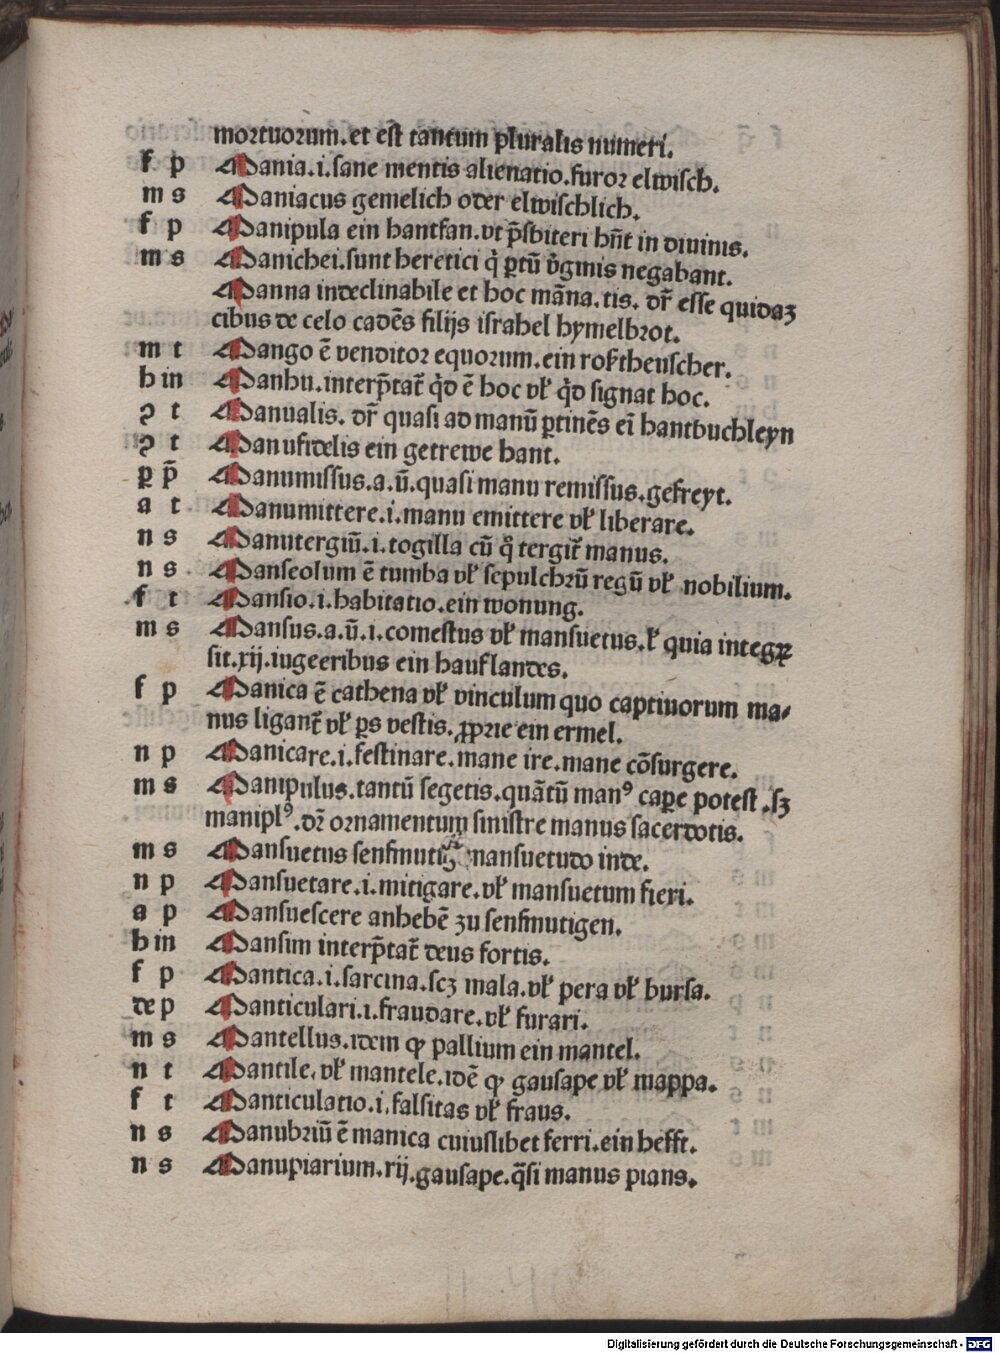 mortuorum.et est tantum pluralis numeri.
f p Mania.i.sane mentis alienatio.furor elwisch.
m s Maniacus gemelich oder elwischlich.
f p Manipula ein hantfan.vt p̄sbiteri hn̄t in diuinis.
m s Manichei.sunt heretici q̇ ꝑtū v̇ginis negabant.
Manna indeclinabile et hoc māna.tis. dr̄ esse quidaꝫ
cibus de celo cadēs filijs israhel hymelbrot.
m t Mango ē venditor equorum.ein roßtheuscher.
h in Manhu.interp̄tat᷑ q̇d ē hoc vꝉ q̇d signat hoc.
ꝯ t Manualis. dr̄ quasi ad manū ꝑtinēs eī hantbuchleyn
ꝯ t Manufidelis ein getrewe hant.
ꝑ p̄ Manumissus.a.ū.quasi manu remissus.gefreyt.
a t Manumittere.i.manu emittere vꝉ liberare.
n s Manutergiū.i.togilla cū q̊ tergit᷑ manus.
n s Manseolum ē tumba vꝉ sepulchrū regū vꝉ nobilium.
f t Mansio.i.habitatio.ein wonung.
m s Mansus.a.ū.i.comestus vꝉ mansuetus.ꝉ quia integꝝ
sit.xij.iugeeribus ein hauflandes.
f p Manica ē cathena vꝉ vinculum quo captiuorum ma-
nus ligant᷑ vꝉ ꝑs vestis.ꝓprie ein ermel.
n p Manicare.i.festinare.mane ire.mane cōsurgere.
m s Manipulus.tantū segetis.quātū manꝰ caꝑe potest.sꝫ
maniplꝰ.dr̄ ornamentum sinistre manus sacerdotis.
m s Mansuetus senfmutig mansuetudo inde.
n p Mansuetare.i.mitigare.vꝉ mansuetum fieri.
a p Mansuescere anhebē zu senfmutigen.
h in Mansim interp̄tat᷑ deus fortis.
f p Mantica.i.sarcina.scꝫ mala.vꝉ pera vꝉ bursa.
de p Manticulari.i.fraudare.vꝉ furari.
m s Mantellus.idem ꝙ pallium ein mantel.
n t Mantile.vꝉ mantele.idē ꝙ gausape vꝉ mappa.
f t Manticulatio.i.falsitas vꝉ fraus.
n s Manubriū ē manica cuiuslibet ferri.ein hefft.
n s Manupiarium.rij.gausape.q̄si manus pians.
Digitalisierung gefördert durch die Deutsche Forschungsgemeinschaft - DFG